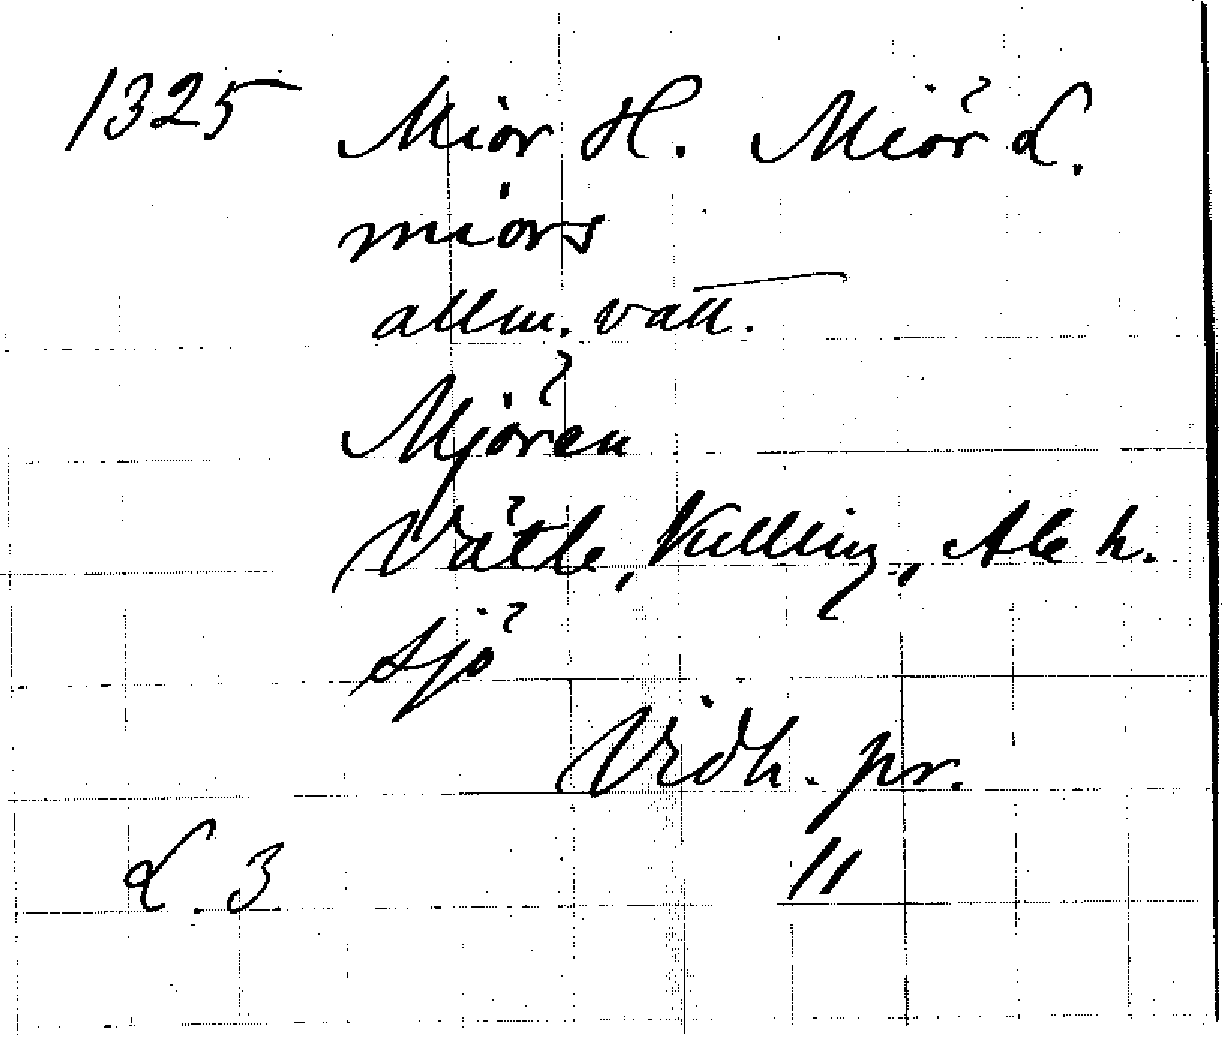 1325 Miör H. Miör L.
miörs
allm. vatt.
Mjören
Vätle, Kulling, Ale h.
sjö
Vidh. pr.
L. 3 11